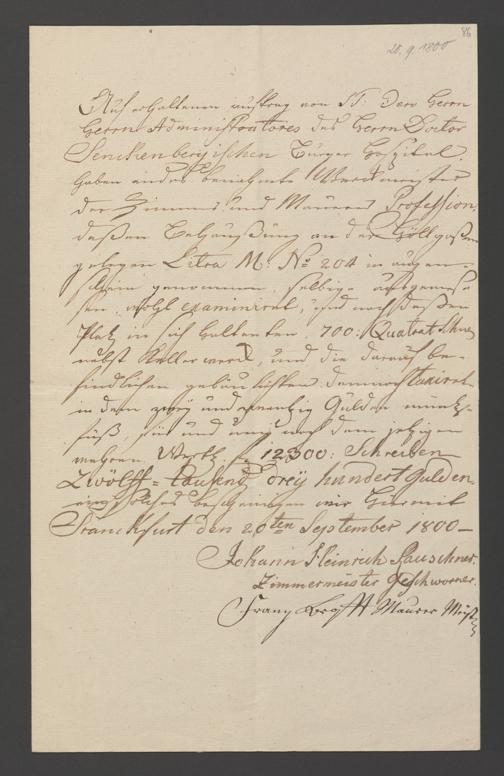 86
20. 9. 1800
Auf erhaltenen auftrag von Tt: Denen Herrn
Herrn Administratores des Herrn Doctor
Senckenbergischen Burger Hospital
haben endes benahmte Werckmeister
der Zimmer und Maurer Profession,
deßen Behaußung an der
gelegen Litra M: No 204 in augen-
schein genommen, selbige ausgemes-
sen, wohl examiniret, und nach deßen
Platz in sich haltenten 700: Quatrat Schue
nebst Keller werck, und die darauf be-
findlichen gebäulichkeiten taxiret
in dem vier und zwantzig Gulden müntz-
fuß, vor und nach dem jetzigen
wahren Werth f 12300: Schreiben
Zwölff = tausend dreÿ hundert Gulden,
ein solches bescheinigen wir hiermit
Franckfurt den 20ten September 1800 –
Johann Heinrich
Zimmermeister Geschworner.
Franz Maurer Meister